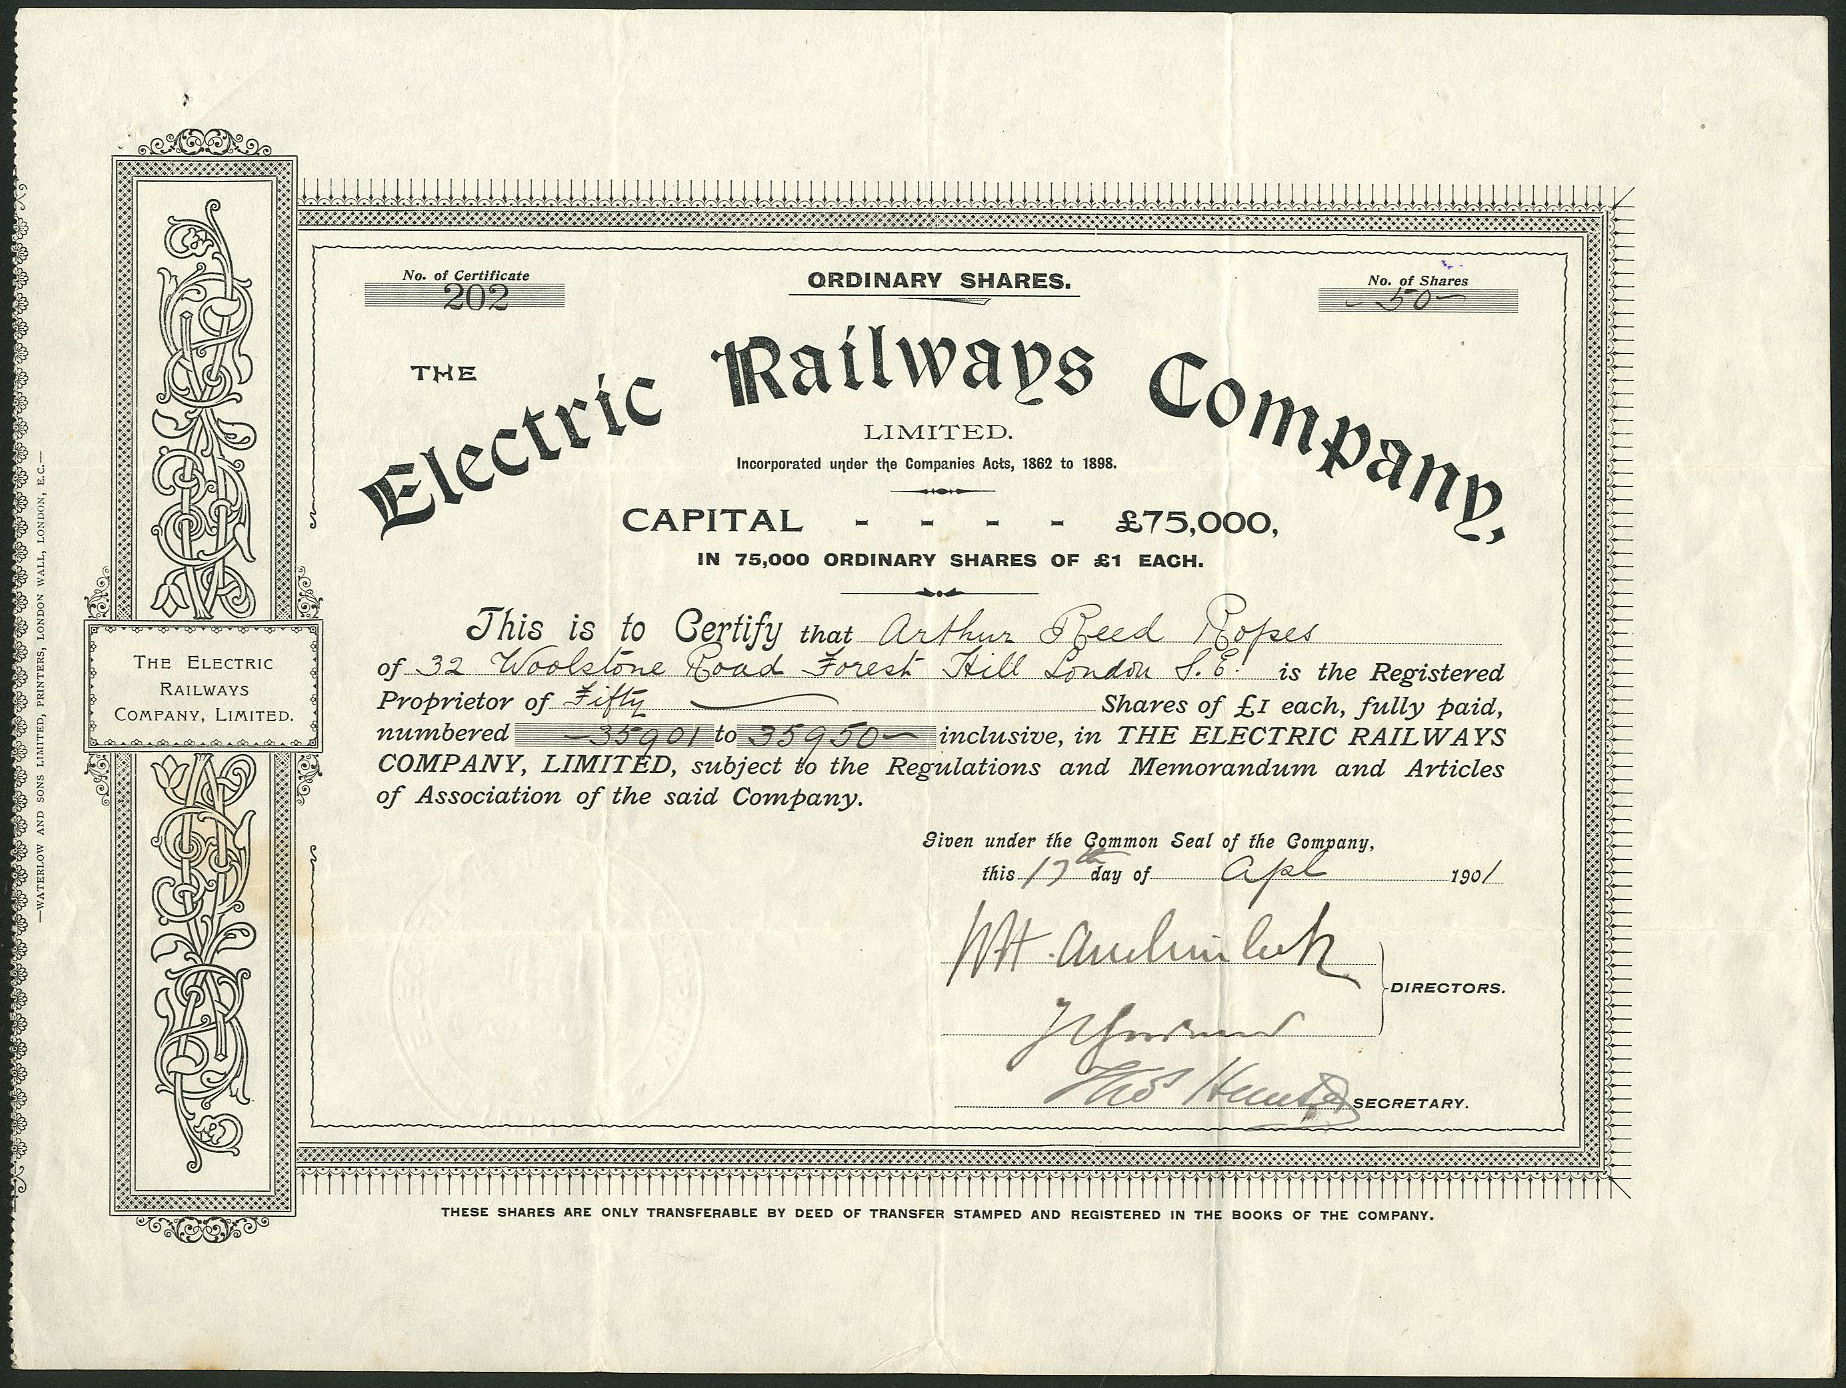 No. of Certificate
202
ORDINARY SHARES.
No. of Shares
50
THE
Electric Railways Company,
LIMITED.
Incorporated under the Companies Acts, 1862 to 1898.
CAPITAL - - - - £75,000,
IN 75,000 ORDINARY SHARES OF £1 EACH.
This is to Certify that Arthur Reed Ropes
of 32 Woolstone Road Forest Hill London S.E. is the Registered
Proprietor of Fifty Shares of £1 each, fully paid,
numbered 35901 to 35950 inclusive, in THE ELECTRIC RAILWAYS
COMPANY, LIMITED, subject to the Regulations and Memorandum and Articles
of Association of the said Company.
Given under the Common Seal of the Company,
this 17th day of Apl 1901
DIRECTORS.
Thos Hunter SECRETARY.
THESE SHARES ARE ONLY TRANSFERABLE BY DEED OF TRANSFER STAMPED AND REGISTERED IN THE BOOKS OF THE COMPANY.
THE ELECTRIC
RAILWAYS
COMPANY, LIMITED.
—WATERLOW AND SONS LIMITED, PRINTERS, LONDON WALL, LONDON, E.C.—